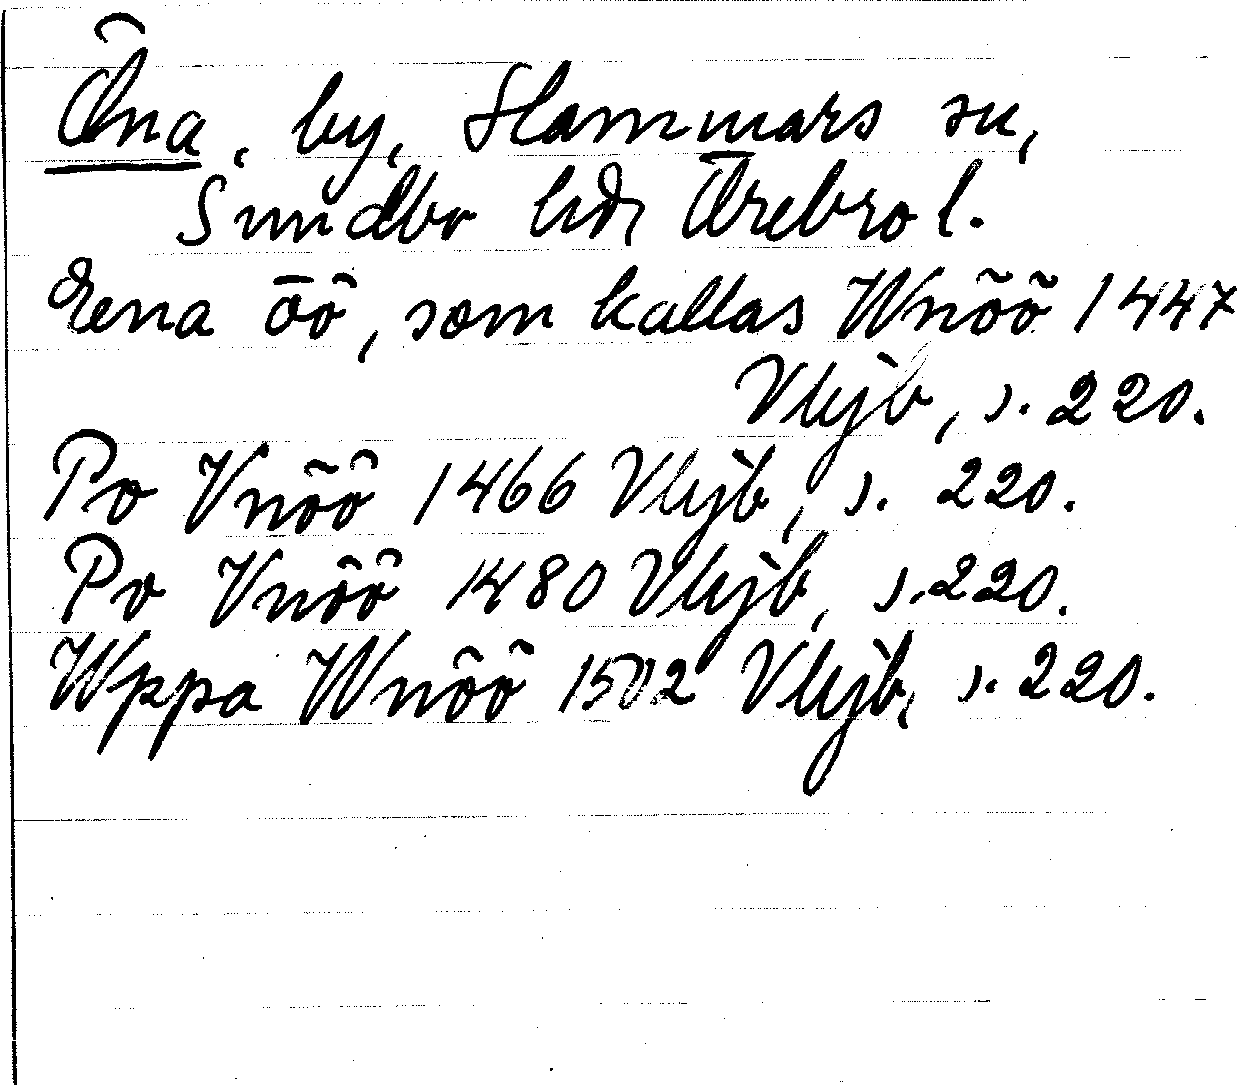 Öna, by, Hammars sn,
Sundbo hd, Örebro l.
Eena öö, som kallas Wnöö 1447
Vkjb, s. 220.
Po Vnöö 1466 Vkjb, s. 220.
Po Vnöö 1480 Vkjb, s. 220.
Wppa Wnöö 1502 Vkjb, s. 220.